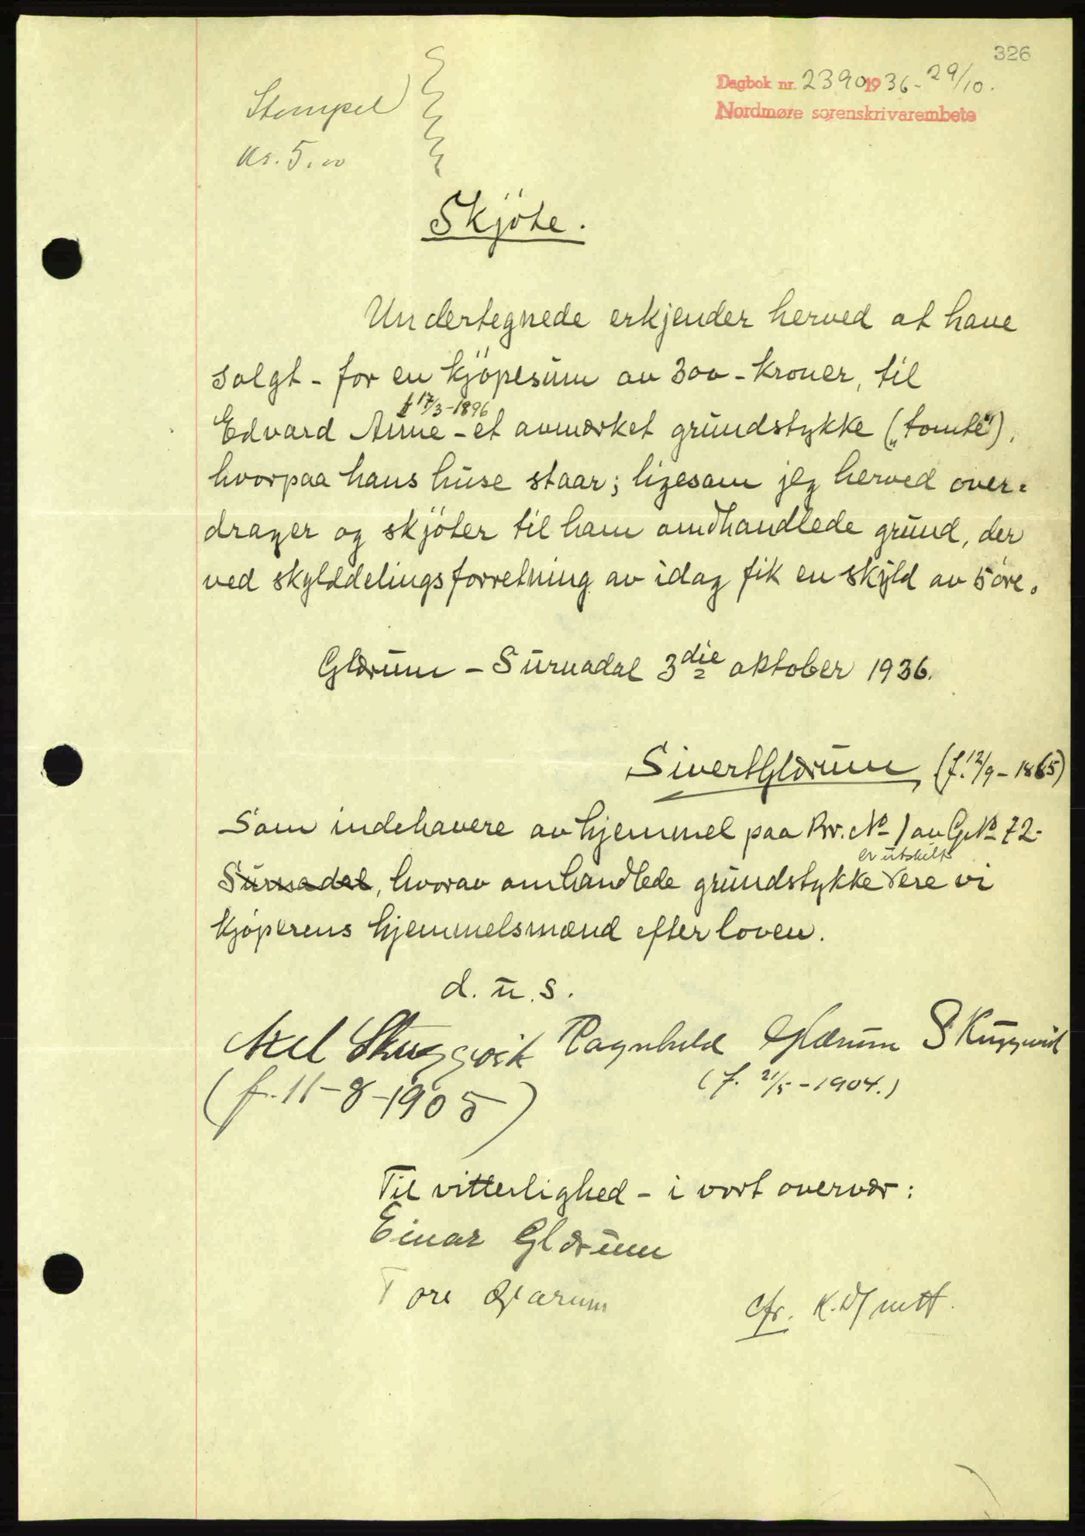 326
Dagbok nr. 2390 1936 - 29/10.
Nordmøre sorenskrivarembete
Stempel
Kr. 5.00
Skjöte.
Undertegnede erkjender herved at have
solgt - for en kjöpesum av 300 - kroner, til
f 17/3-1896
Edvard Arne - et avmerket grundstykke („tomte"),
hvorpaa hans huse staar; ligesom jeg herved over-
drager og skjöter til ham omhandlede grund, der
ved skylddelingsforretning av idag fik en skyld av 5 öre.
Glærum - Surnadal 3die oktober 1936.
Sivert Glærum (f. 12/9 - 1865)
Som indehavere av hjemmel paa Br. No 1 av G.No 72 -
er utskilt
Surnadal, hvorav omhandlede grundstykke vere vi
kjöperens hjemmelsmænd efter loven.
d. u. s.
Axel Skuggvik Ragnhild Glærum Skuggvik
(f. 11-8-1905) (f. 21/5 - 1904.)
Til vitterlighed - i vort overvær:
Einar Glærum
Tore Glærum
cfr.